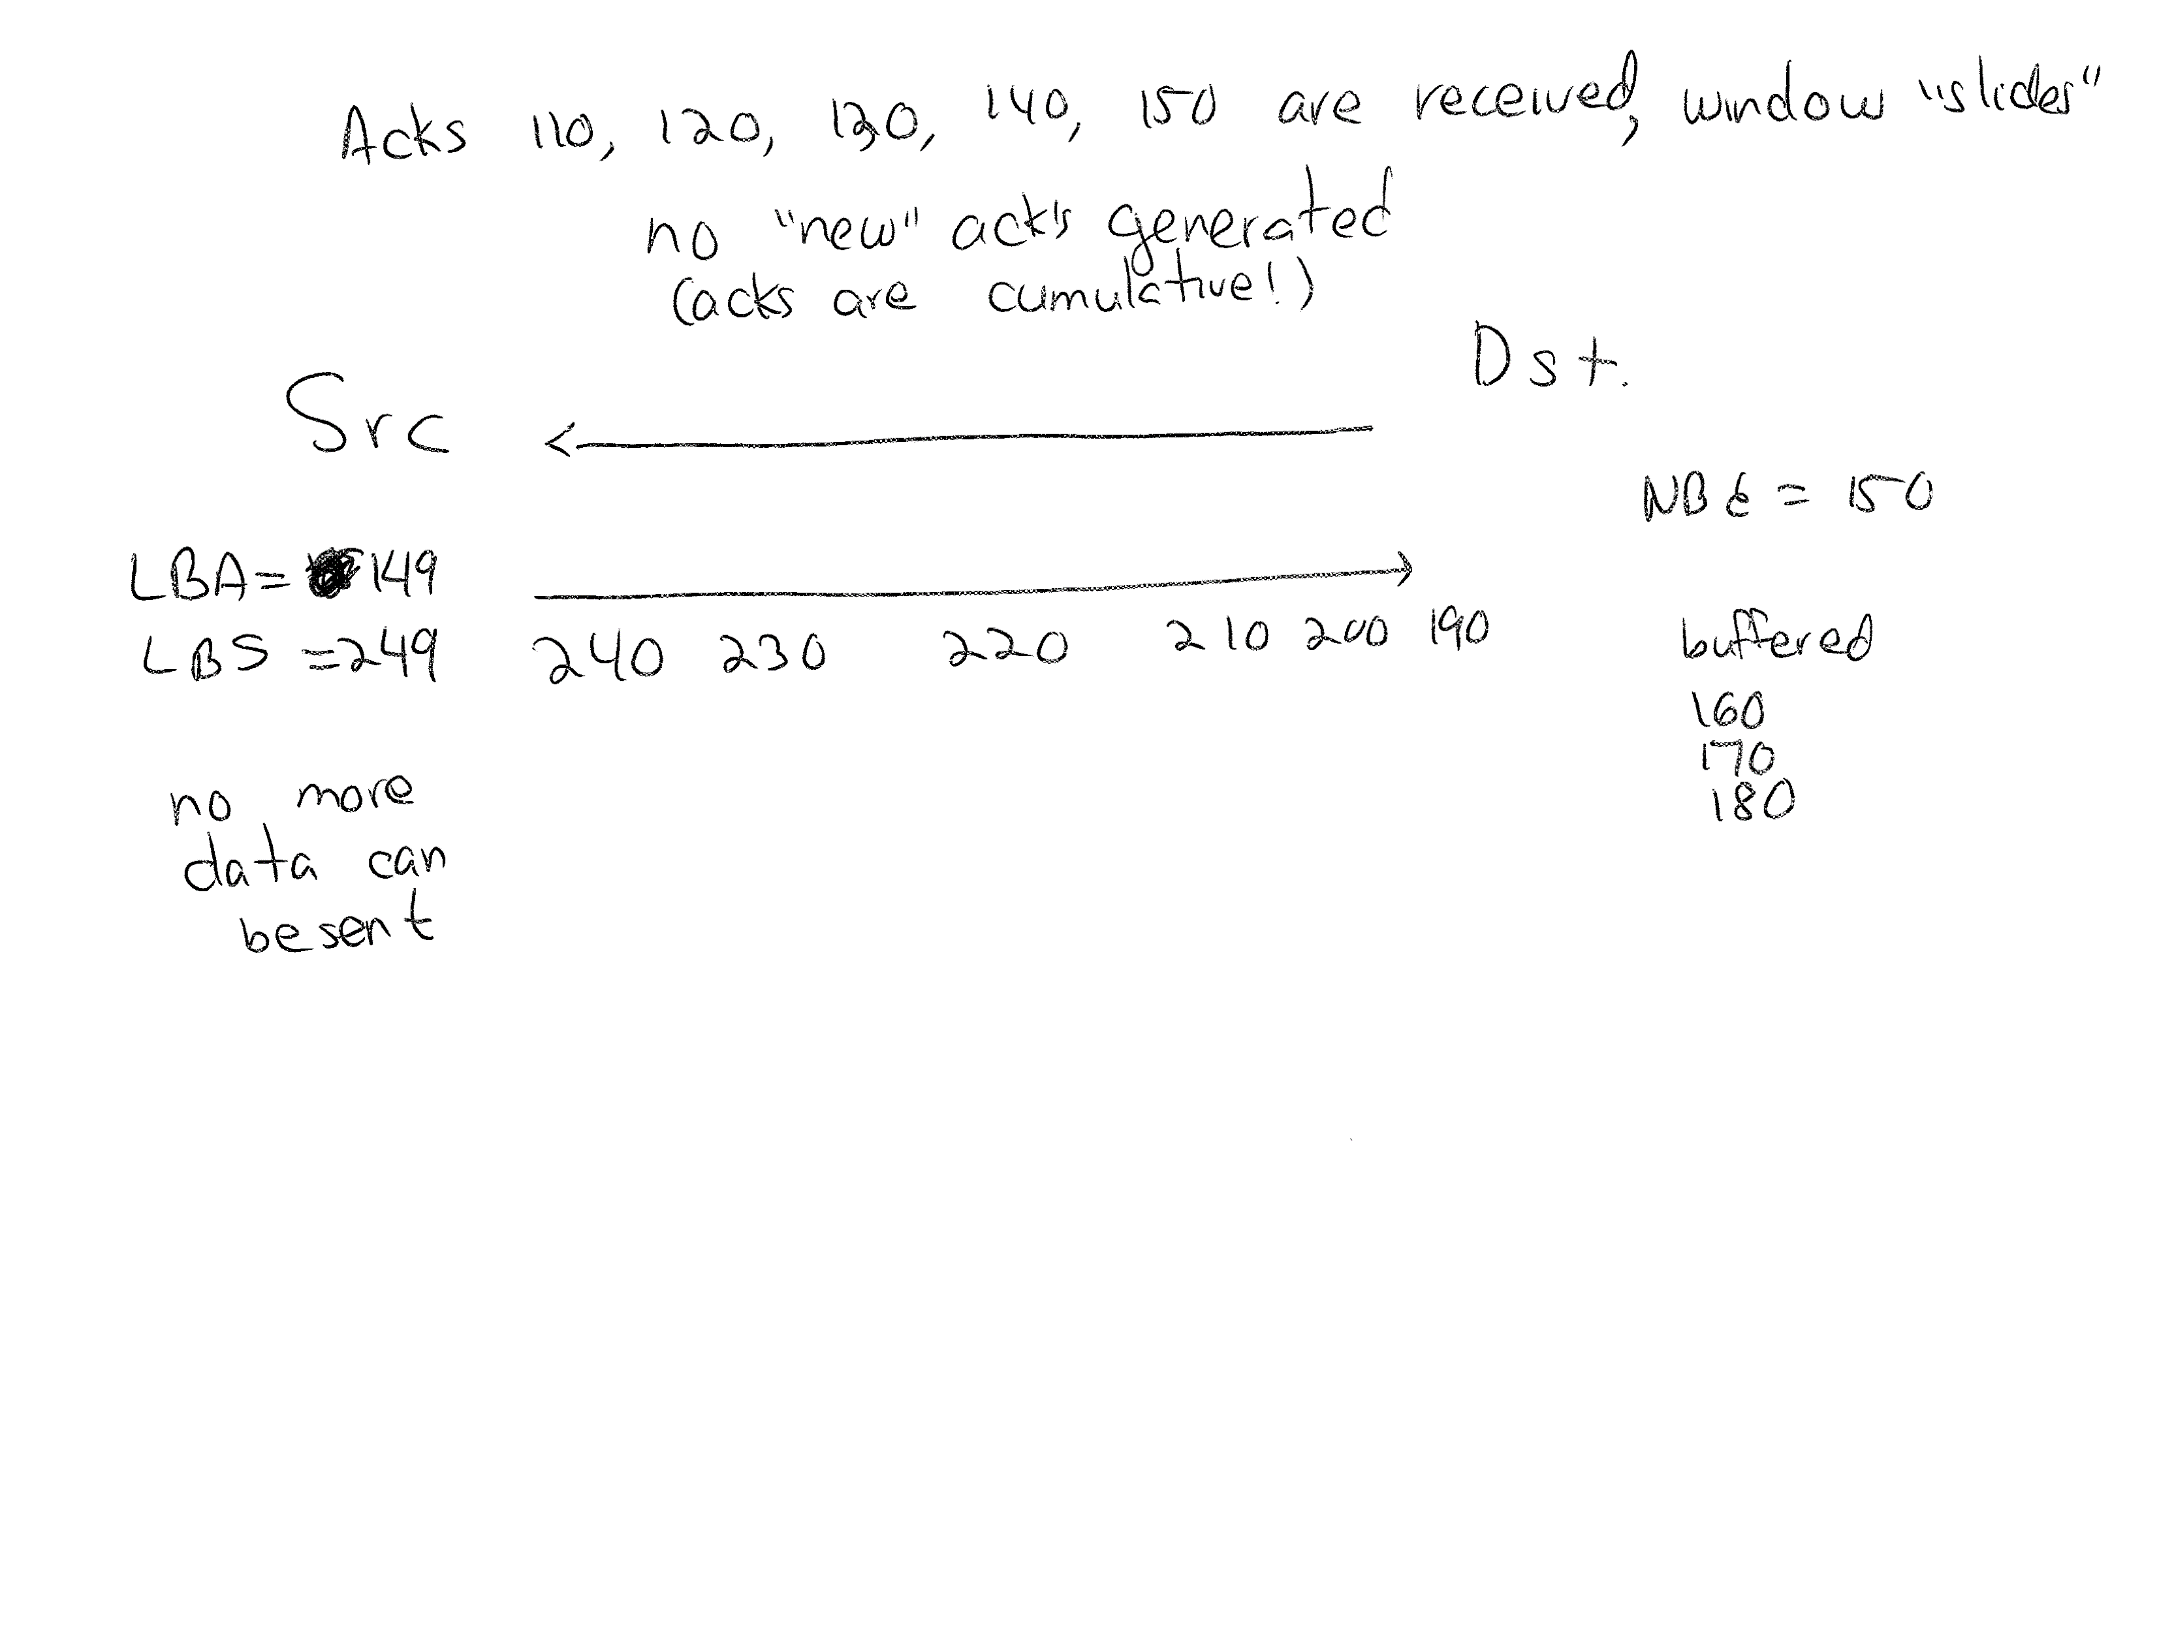 Acks 110, 120, 130, 140, 150 are received, window "slides"
no "new" ack's generated
(acks are cumulative!)
Dst.
Src
NBE = 150
LBA = 149
LBS = 249
240 230 220 210 200 190
buffered
160
170
180
no more
data can
be sent